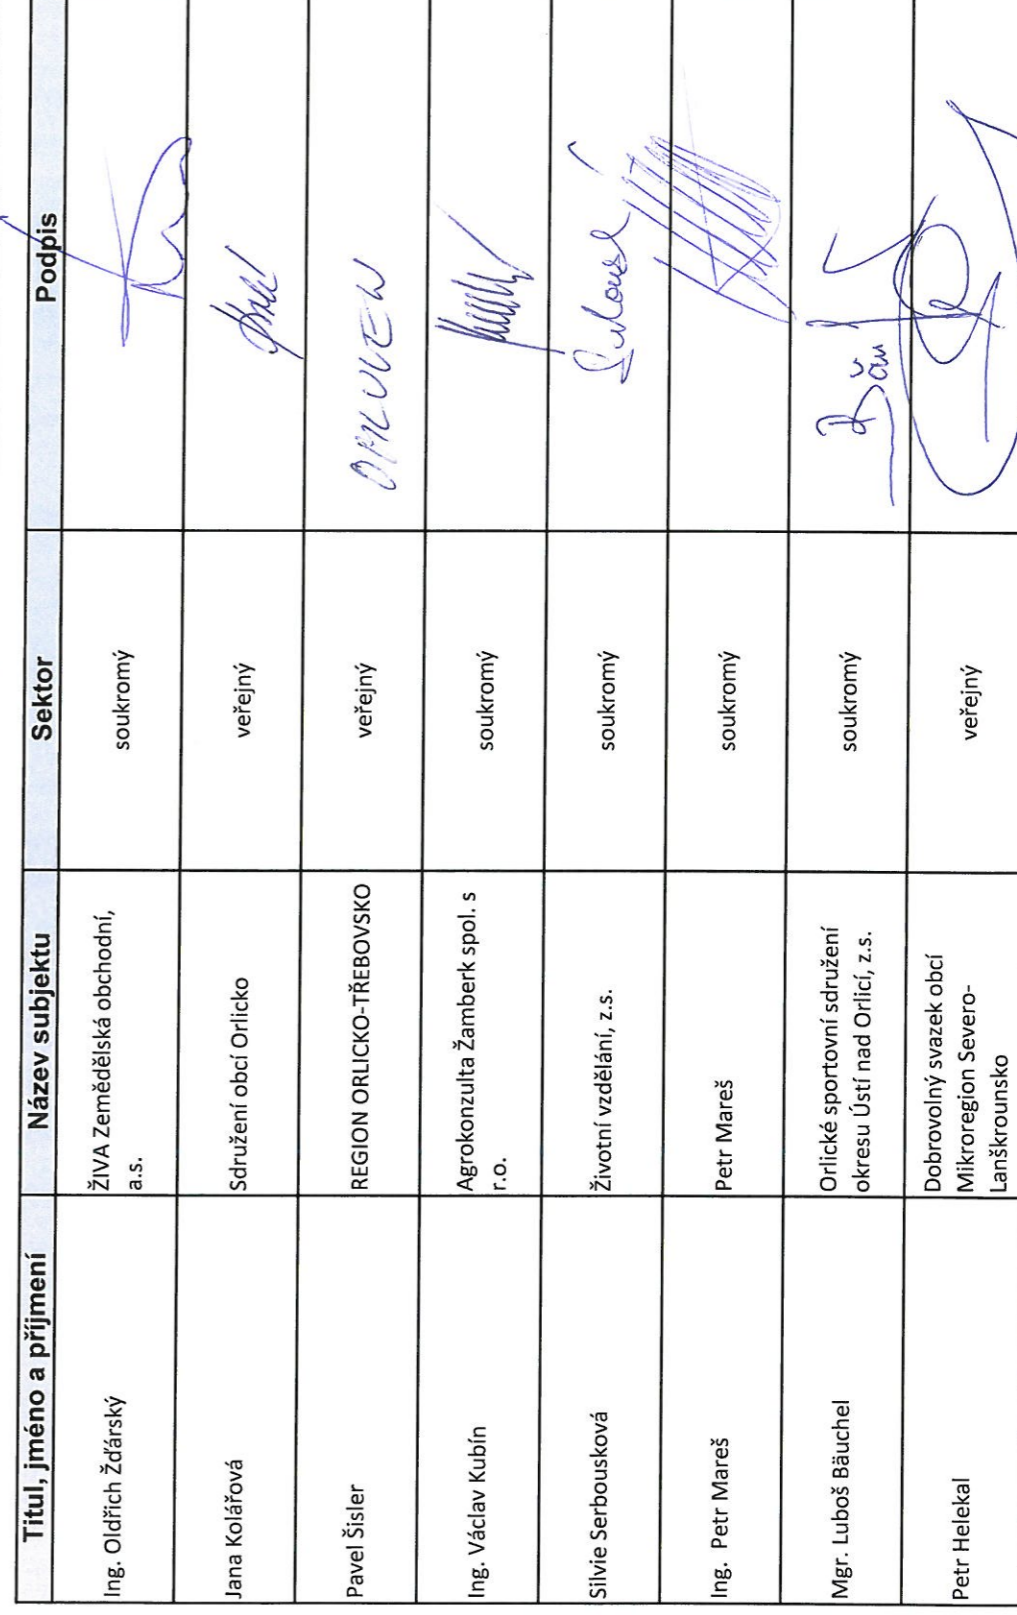 Titul, jméno a příjmení Název subjektu Sektor Podpis
Ing. Oldřich Žďárský ŽIVA Zemědělská obchodní, soukromý
a.s.
Jana Kolářová Sdružení obcí Orlicko veřejný
Pavel Šisler REGION ORLICKO-TŘEBOVSKO veřejný
Ing. Václav Kubín Agrokonzulta Žamberk spol. s soukromý
r.o.
Silvie Serbousková Životní vzdělání, z.s. soukromý
Ing. Petr Mareš Petr Mareš soukromý
Mgr. Luboš Bäuchel Orlické sportovní sdružení soukromý
okresu Ústí nad Orlicí, z.s.
Petr Helekal Dobrovolný svazek obcí veřejný
Mikroregion Severo-
Lanškrounsko